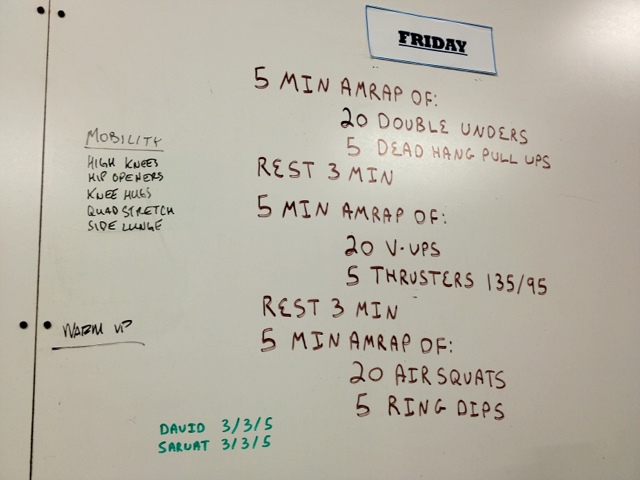 FRIDAY
5 MIN AMRAP OF:
20 DOUBLE UNDERS
5 DEAD HANG PULL UPS
REST 3 MIN
5 MIN AMRAP OF:
20 V-UPS
5 THRUSTERS 135/95
REST 3 MIN
5 MIN AMRAP OF:
20 AIR SQUATS
5 RING DIPS
MOBILITY
HIGH KNEES
HIP OPENERS
KNEE HUGS
QUAD STRETCH
SIDE LUNGE
WARM UP
DAVID 3/3/5
SARVAT 3/3/5